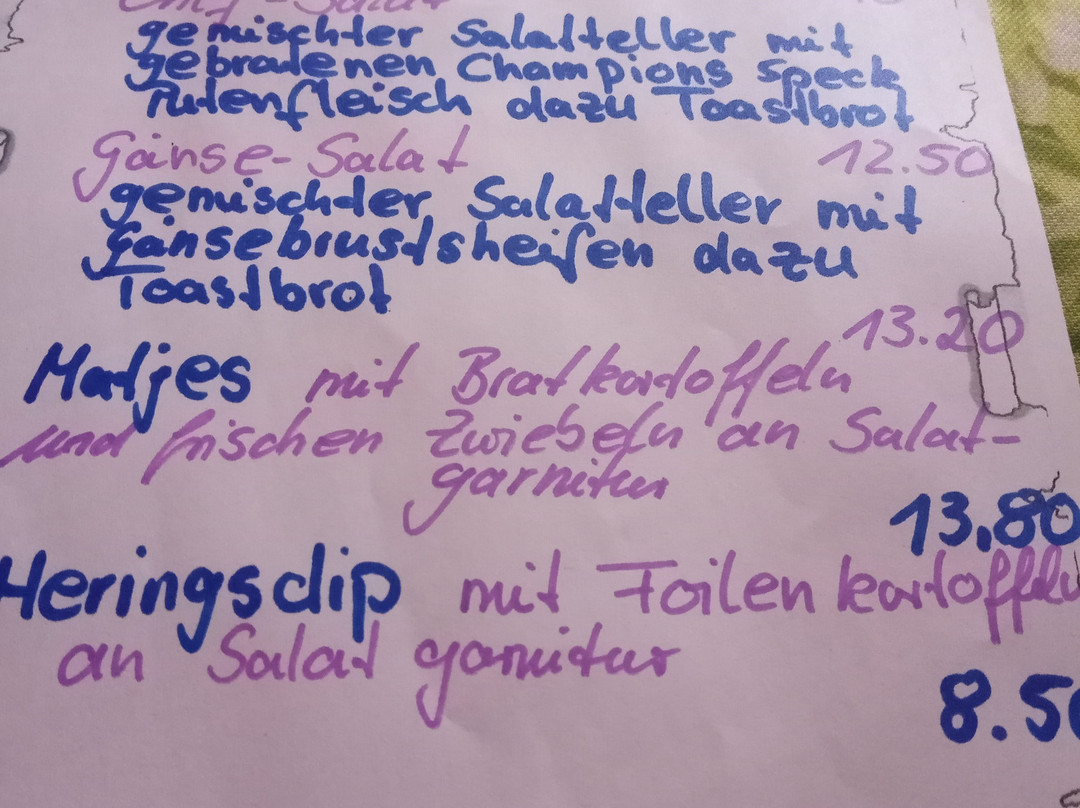 gemischter Salatteller mit
gebratenen Champions Speck
Putenfleisch dazu Toastbrot
Gänse-Salat 12.50
gemischter Salatteller mit
Gänsebrustsheifen dazu
Toastbrot
13.20
Matjes mit Bratkartoffeln
und frischen Zwiebeln an Salat-
garnitur
13,80
Heringsdip mit Foilenkartoffeln
an Salat garnitur
8.50